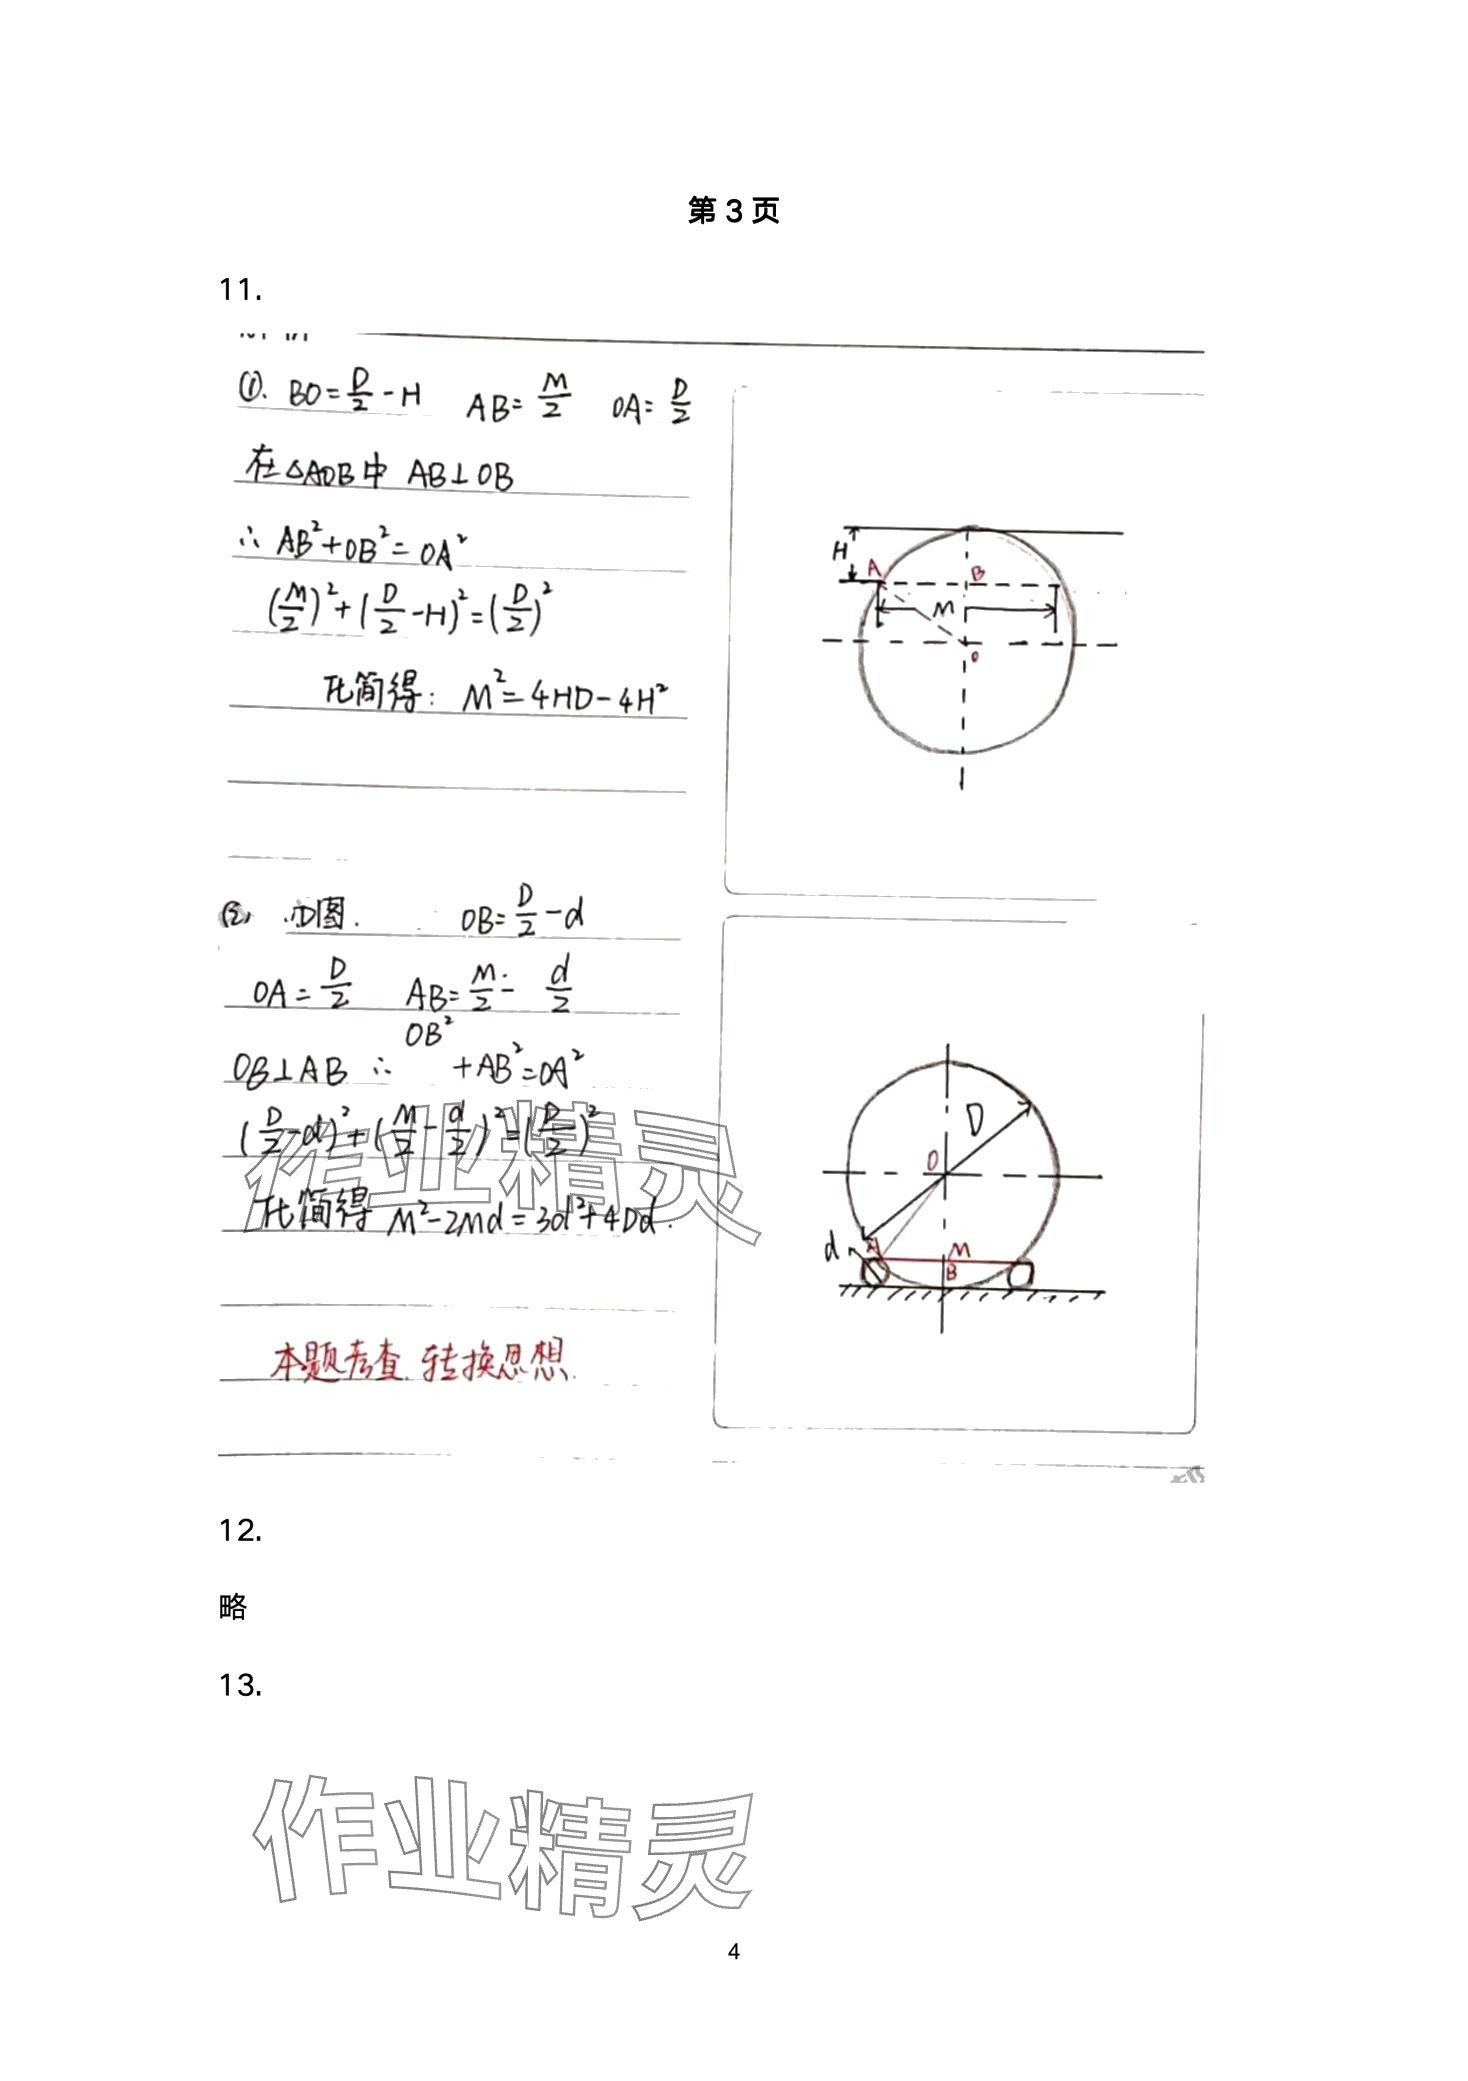 第 3 页
11.
①. BO=D/2-H AB=M/2 OA=D/2
在△AOB中 AB⊥OB
∴ AB²+OB²=OA²
(M/2)²+(D/2-H)²=(D/2)²
化简得: M²=4HD-4H²
H
A
B
M
O
(2) 如图. OB=D/2-d
OA=D/2 AB=M/2-d/2
OB⊥AB ∴ OB²+AB²=OA²
(D/2-d)²+(M/2-d/2)²=(D/2)²
化简得 M²-2Md=3d²+4Dd.
本题考查 转换思想.
D
O
d
A
M
B
12.
略
13.
作业精灵
作业精灵
4